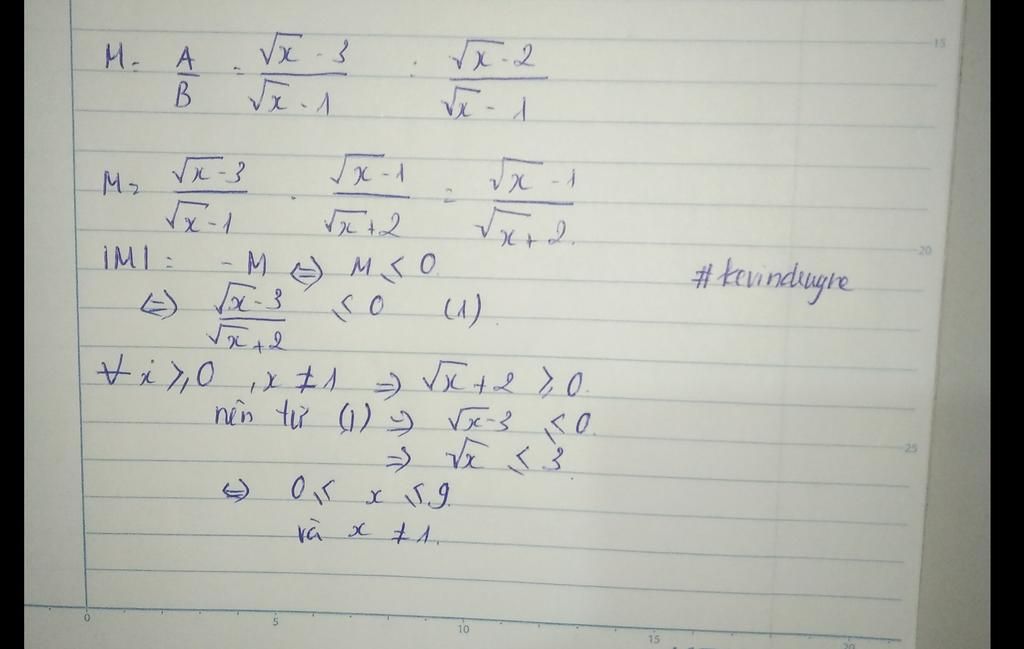 M = A/B = (√x - 3)/(√x - 1) : (√x - 2)/(√x - 1)
M = (√x - 3)/(√x - 1) . (√x - 1)/(√x + 2) = (√x - 1)/(√x + 2).
|M| = - M ⇔ M ≤ 0.
⇔ (√x - 3)/(√x + 2) ≤ 0 (1).
#kevindeugre
∀ x ≥ 0, x ≠ 1 ⇒ √x + 2 ≥ 0.
nên từ (1) ⇒ √x - 3 ≤ 0.
⇒ √x ≤ 3.
⇔ 0 ≤ x ≤ 9.
và x ≠ 1.
15
20
25
0 5 10 15 20